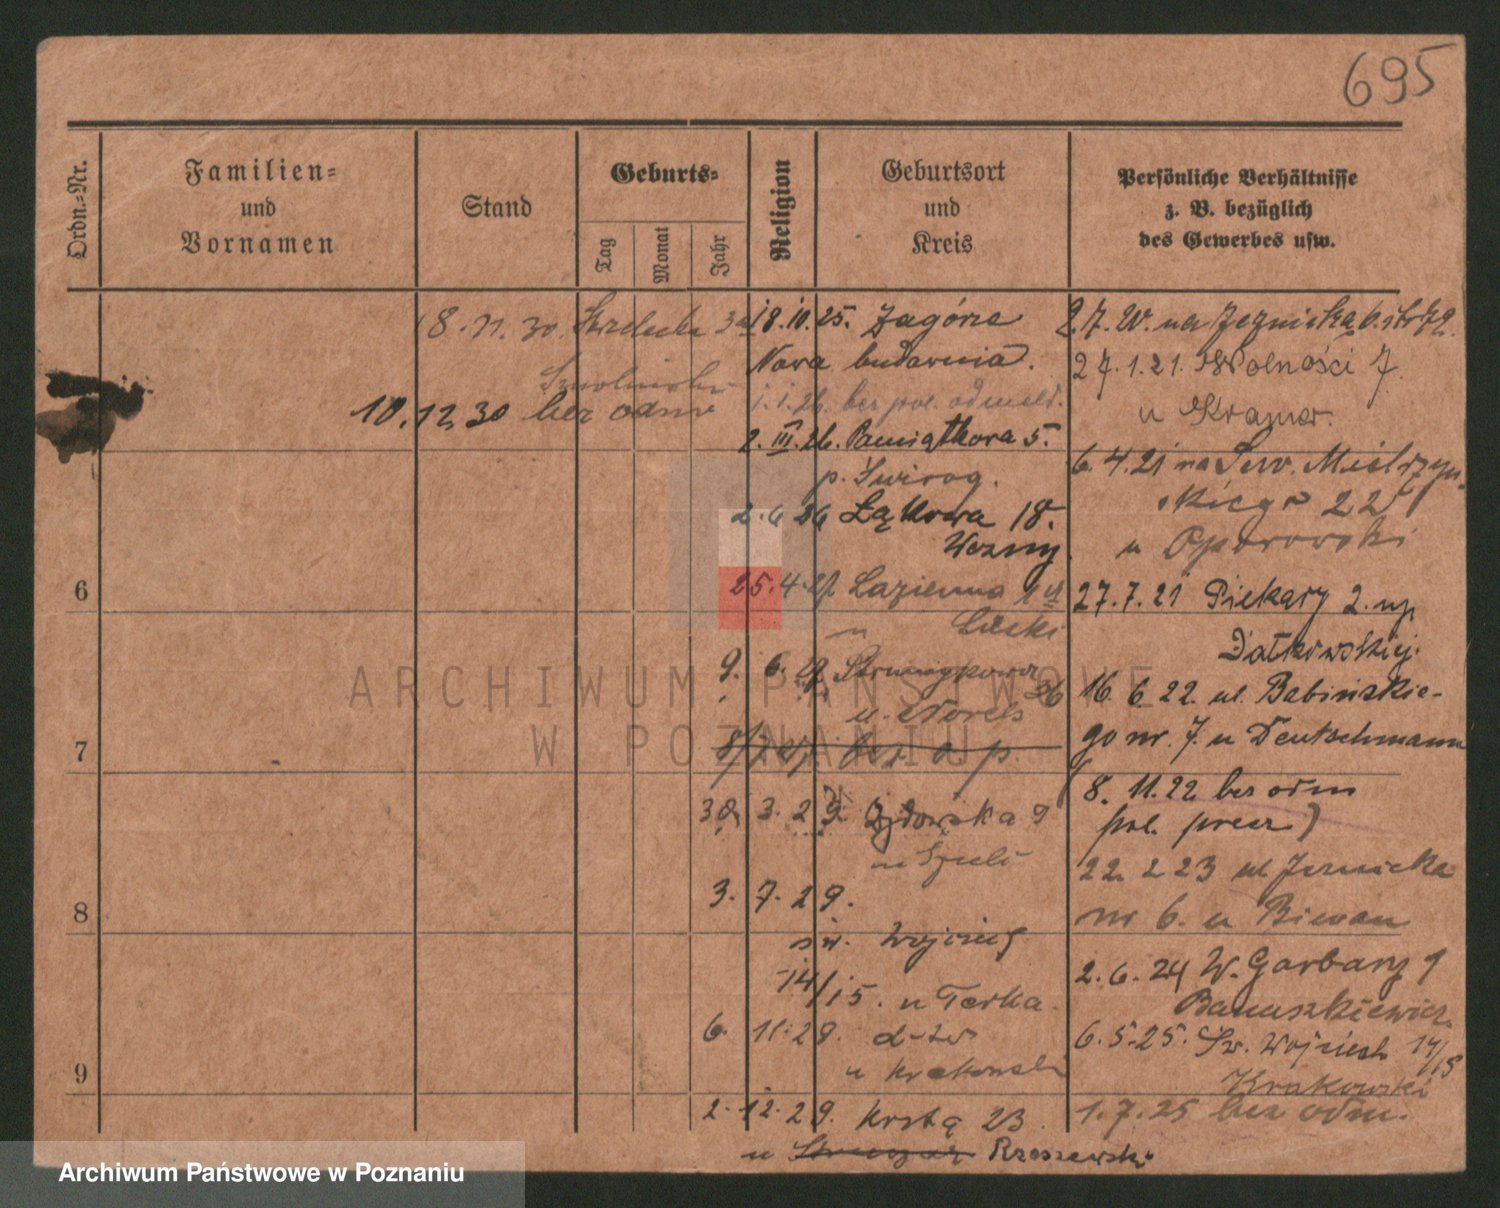 695
Ordn.-Nr.
Familien-
und
Vornamen
Stand
Geburts-
Tag
Monat
Jahr
Religion
Geburtsort
und
Kreis
Persönliche Verhältnisse
z. B. bezüglich
des Gewerbes usw.
8.11.30 Strzelecka
10.12.30 bez odm
18.10.25. Zagórze
Nowa budownia.
1.1.26. bez pol. odmeld.
2.III.26. Pamiątkowa 5.
p. Świrog.
2.6.26 Łąkowa 18.
Wozny
25.4.27 Łazienna
u Łącki
9. 6.
36
u
8/ bez o p.
30. 3. 29. Żydowska 9
u
3. 7. 29.
św. Wojciech
14/15. u Terka
6. 11. 29. d-to
u Krakowski
2. 12. 29. Krętą 23.
u Rzeszewski
27. 1. 21. Wolności 7.
u Krajner.
6. 4. 21 na Sew. Mielżyń-
skiego 22
u Oporowski
27. 7. 21 Piekary 2. up
Datkowskiej.
16. 6. 22. ul. Babińskie-
go nr. 7. u Deutschmann
8. 11. 22 bez odm
pol. precz)
22. 2 23 ul Jeznicka
nr 6. u
2. 6. 24 W. Garbary 9
Banaszkiewicz.
6. 5. 25. Św. Wojciech 14/15
Krakowski
1. 7. 25 bez odm.
6
7
8
9
ARCHIWUM PAŃSTWOWE
W POZNANIU
Archiwum Państwowe w Poznaniu